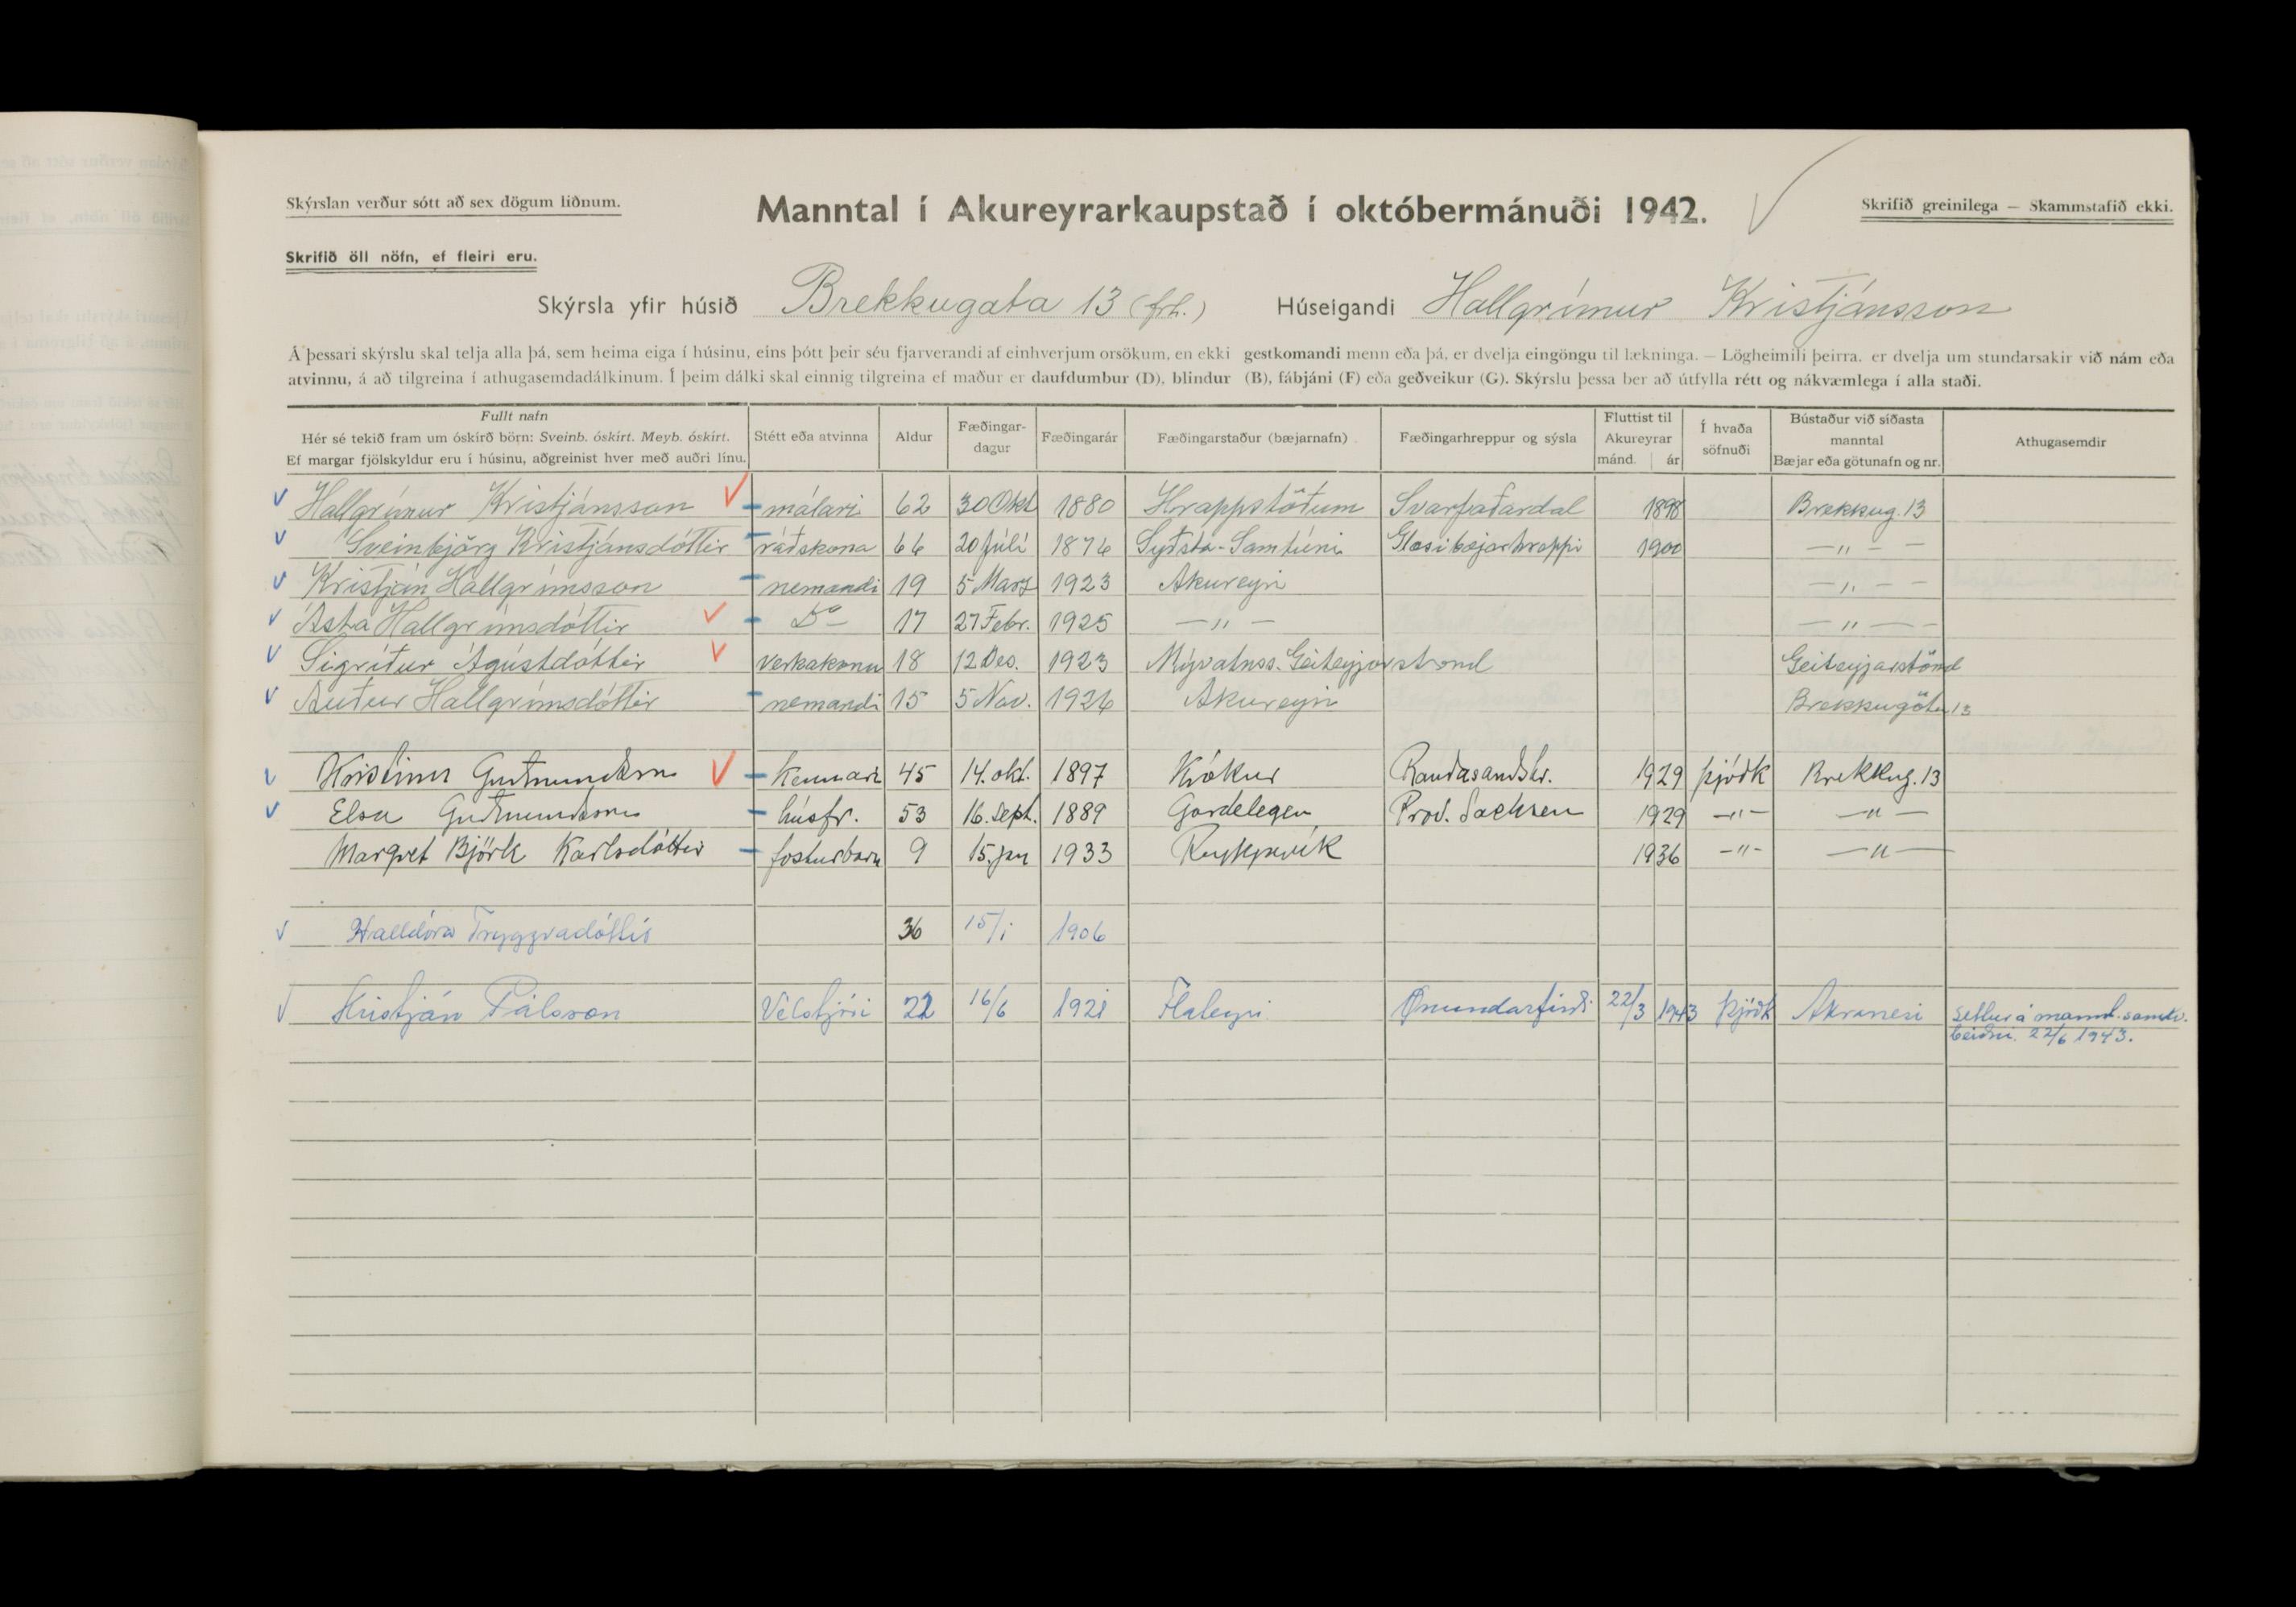 Skýrslan verður sótt að sex dögum liðnum.
Manntal í Akureyrarkaupstað í októbermánuði 1942.
Skrifið greinilega — Skammstafið ekki.
Skrifið öll nöfn, ef fleiri eru.
Skýrsla yfir húsið Brekkugata 13 (frh.) Húseigandi Hallgrímur Kristjánsson
Á þessari skýrslu skal telja alla þá, sem heima eiga í húsinu, eins þótt þeir séu fjarverandi af einhverjum orsökum, en ekki gestkomandi menn eða þá, er dvelja eingöngu til lækninga. — Lögheimili þeirra. er dvelja um stundarsakir við nám eða
atvinnu, á að tilgreina í athugasemdadálkinum. Í þeim dálki skal einnig tilgreina ef maður er daufdumbur (D), blindur (B), fábjáni (F) eða geðveikur (G). Skýrslu þessa ber að útfylla rétt og nákvæmlega í alla staði.
Fullt nafn
Hér sé tekið fram um óskírð börn: Sveinb. óskírt. Meyb. óskírt.
Ef margar fjölskyldur eru í húsinu, aðgreinist hver með auðri línu.
Stétt eða atvinna
Aldur
Fæðingar-
dagur
Fæðingarár
Fæðingarstaður (bæjarnafn)
Fæðingarhreppur og sýsla
Fluttist til
Akureyrar
mánd. ár
Í hvaða
söfnuði
Bústaður við síðasta
manntal
Bæjar eða götunafn og nr.
Athugasemdir
Hallgrímur Kristjánsson málari 62 30 Okt 1880 Hrappstöðum Svarfaðardal 1898 Brekkug. 13
Sveinbjörg Kristjánsdóttir ráðskona 66 20 Júlí 1876 Syðsta-Samtúni Glæsibæjarhreppi 1900 —„— —
Kristján Hallgrímsson nemandi 19 5 Mars 1923 Akureyri —„— —
Ásta Hallgrímsdóttir Do 17 27 Febr. 1925 —„— —„— —
Sigríður Ágústdóttir verkakona 18 12 Des. 1923 Mývatnss. Geiteyjarströnd Geiteyjarströnd
Auður Hallgrímsdóttir nemandi 15 5 Nov. 1926 Akureyri Brekkugötu 13
Kristinn Guðmundsson kennari 45 14. okt. 1897 Krókur Rauðasandshr. 1929 þjóðk Brekkug. 13
Elsa Guðmundsson húsfr. 53 16. sept. 1889 Gardelegen Prov. Sachsen 1929 —„— —„—
Margret Björk Karlsdóttir fósturbarn 9 15. jan 1933 Reykjavík 1936 —„— —„—
Halldóra Tryggvadóttir 36 15/1 1906
Kristján Pálsson Vélstjóri 22 16/6 1921 Flateyri Önundarfirði 22/3 1943 þjóðk Akranesi Settur á mannt. samkv.
beiðni 22/6 1943.